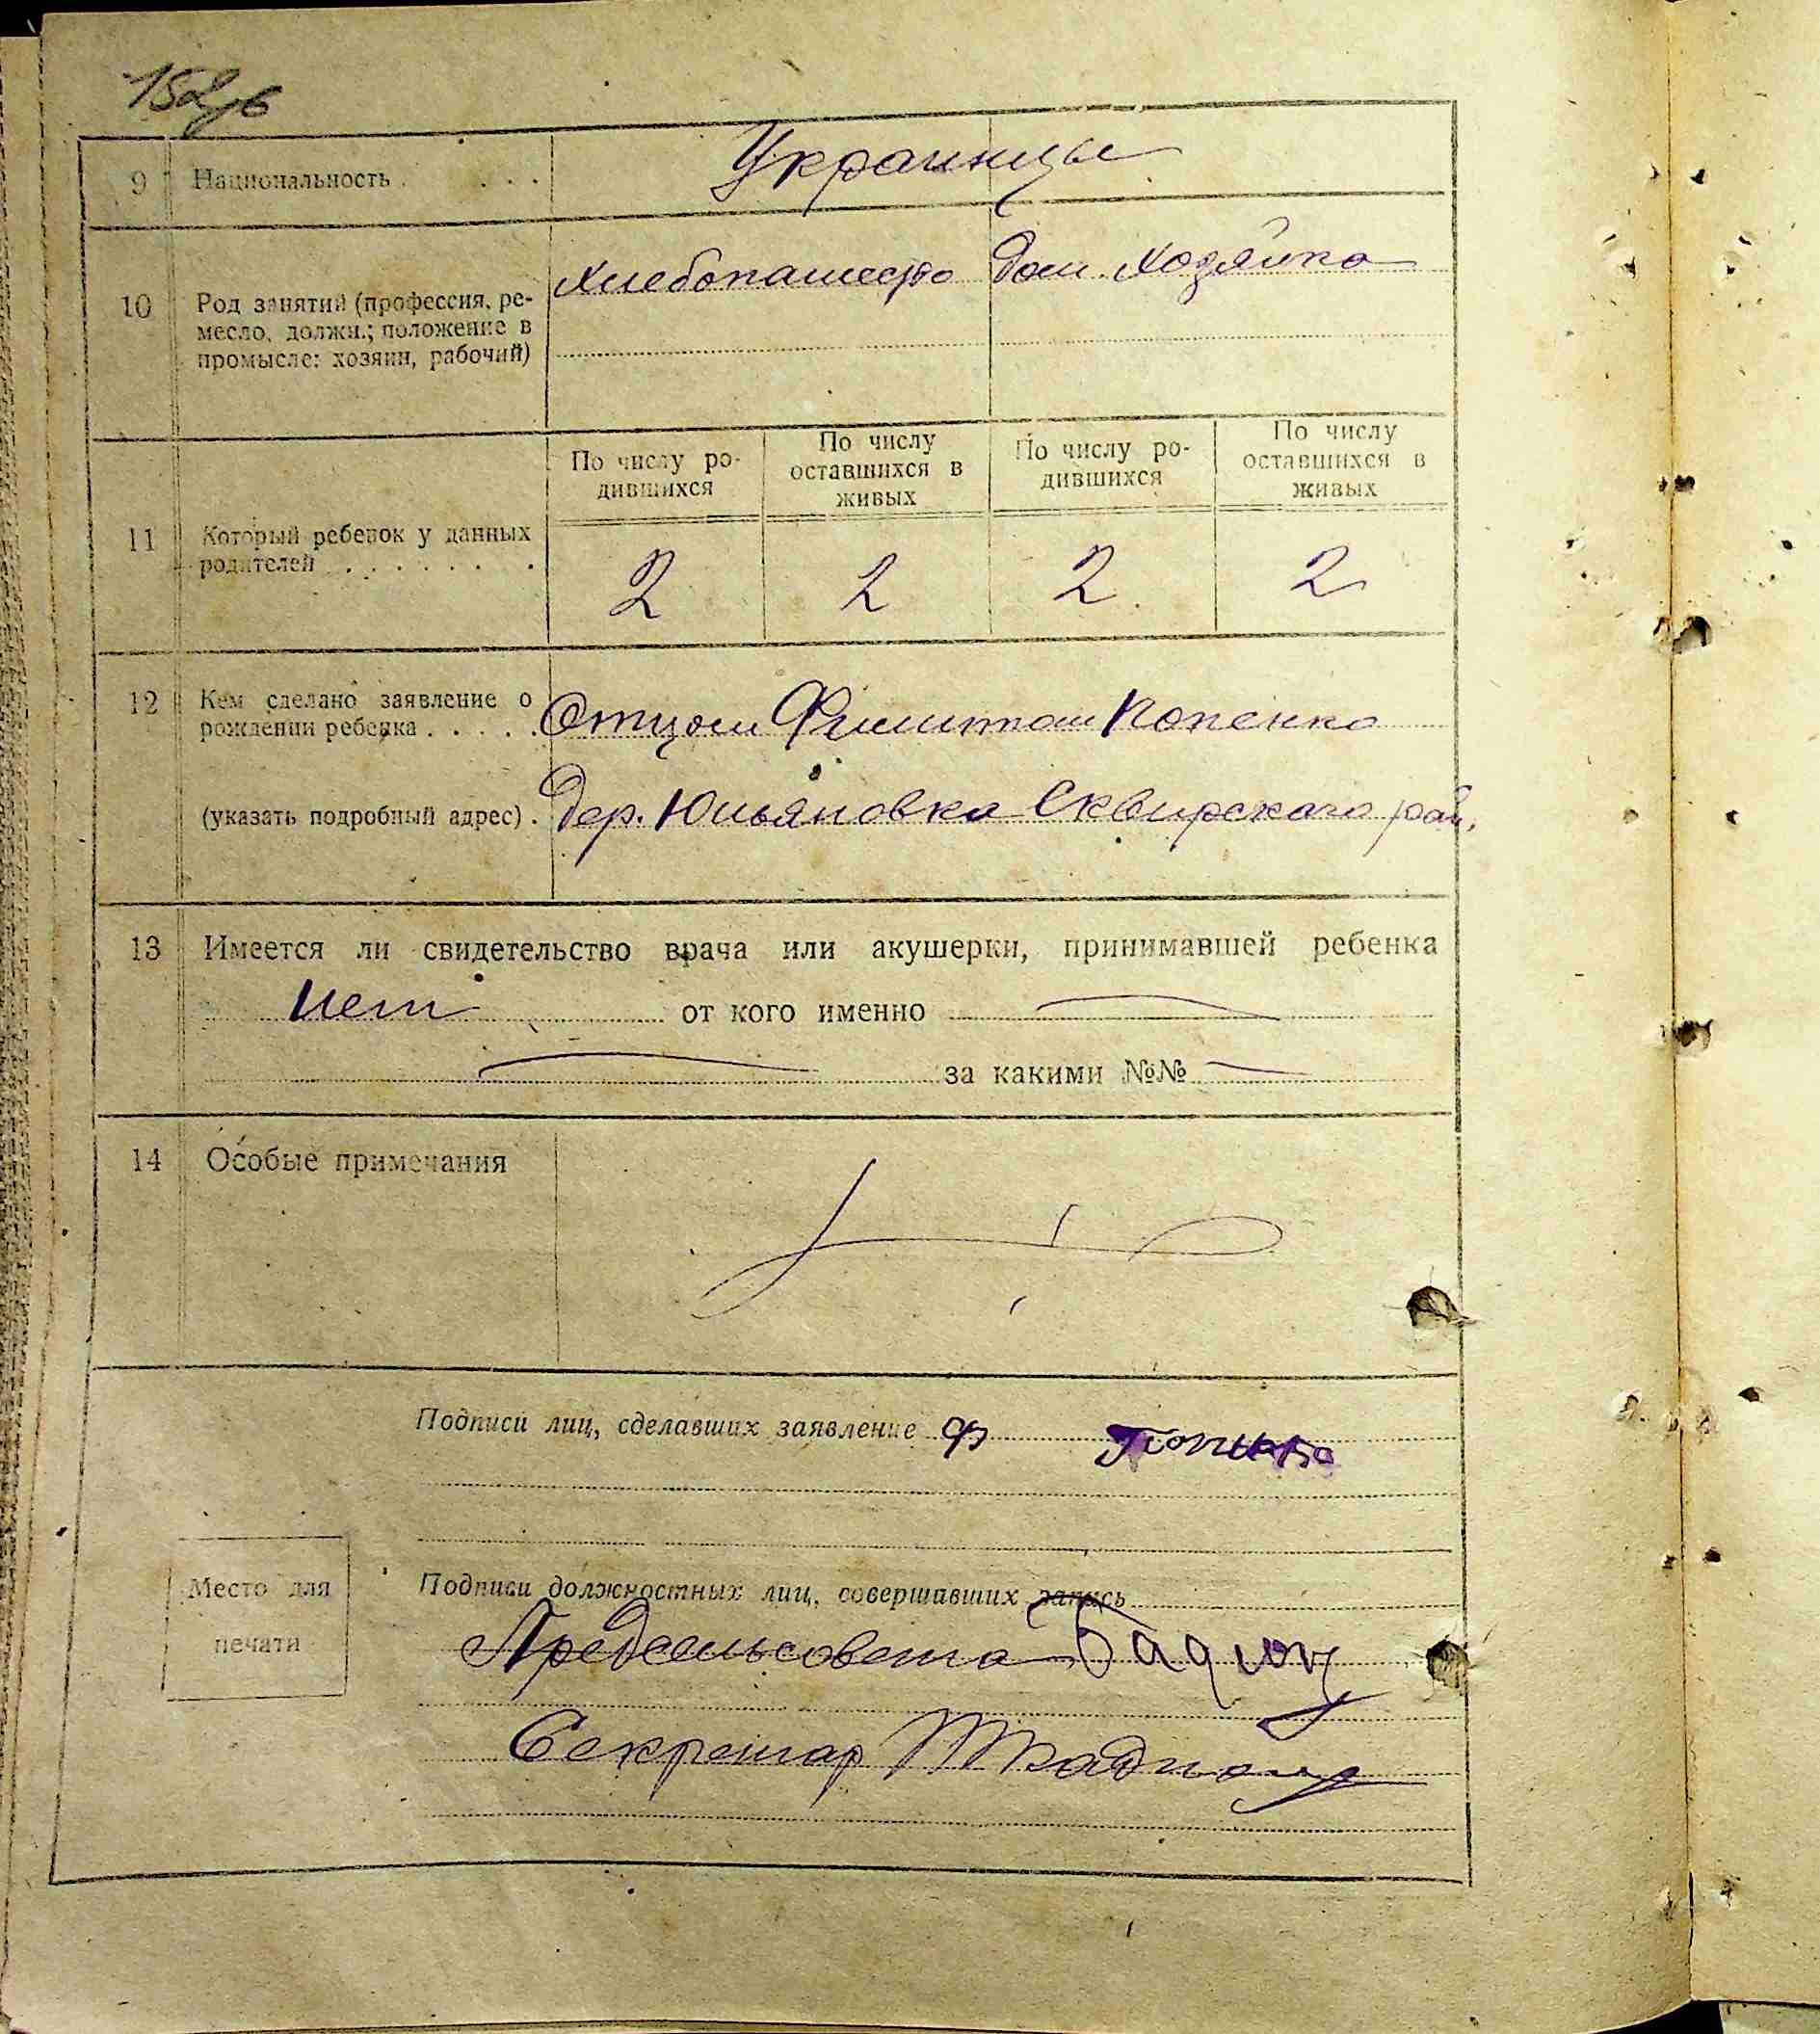 9 Национальность . . . . Украинцы
10 Род занятий (профессия, ре-
месло, должн.; положение в
промысле: хозяин, рабочий)
Хлебопашество Дом. Хозяйка
11 Который ребенок у данных
родителей . . . . . . .
По числу ро-
дившихся
По числу
оставшихся в
живых
По числу ро-
дившихся
По числу
оставшихся в
живых
2 2 2 2
12 Кем сделано заявление о
рождении ребенка . . . . . Отцом Попенко
(указать подробный адрес) . Дер. Юльяновка Сквирского рай.
13 Имеется ли свидетельство врача или акушерки, принимавшей ребенка
Нет от кого именно —
— за какими №№ —
14 Особые примечания
Подписи лиц, сделавших заявление Ф
Подписи должностных лиц, совершавших запись
Место для
печати
Предсельсовета
Секретар